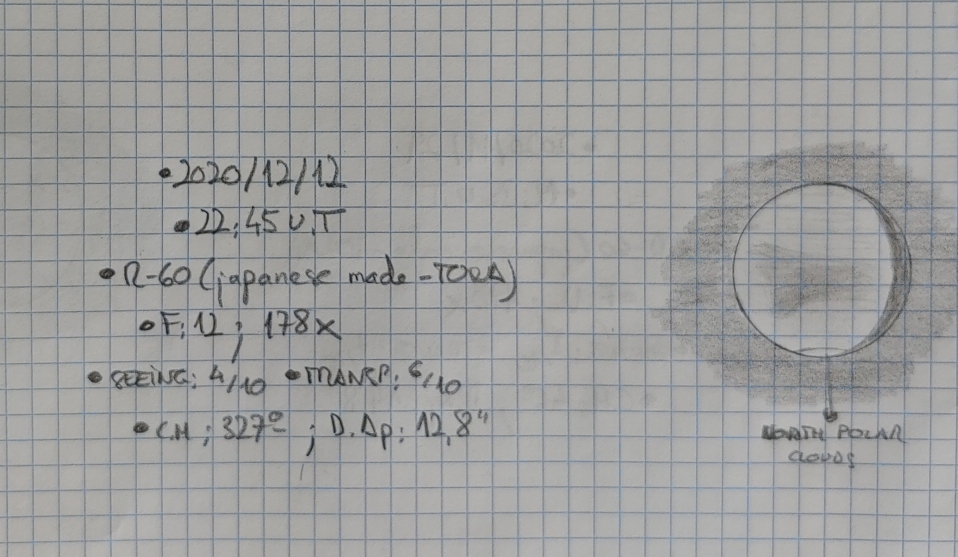 •2020/12/12
•22:45 U.T
•R-60 (japanese made - TOWA)
•F:12 ; 178x
•SEEING: 4/10 •TRANSP: 6/10
•C.M: 327º ; D.Ap: 12,8"
NORTH POLAR
CLOUDS